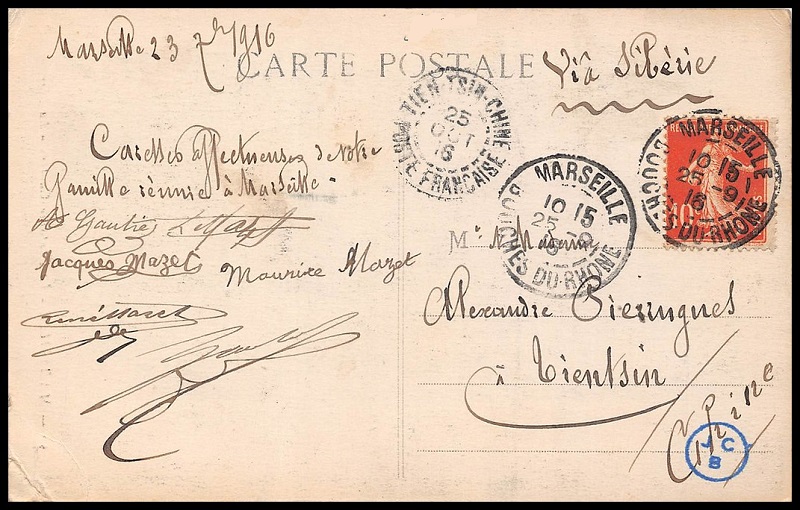 Marseille 23 7bre 1916
CARTE POSTALE
Via Sibérie
TIEN-TSIN-CHINE
25
OCT
16
POSTE FRANÇAISE
MARSEILLE
10 15
25 -9
16
BOUCHES DU-RHONE
MARSEILLE
10 15
25 -9
16
BOUCHES DU-RHONE
10
Caresses affectueuses de Notre
Famille réunie à Marseille
Gautier
Jacques Mazet
Maurice Mazet
M
et Madame
Alexandre Pierrugues
à Tientsin
Chine
JC
8